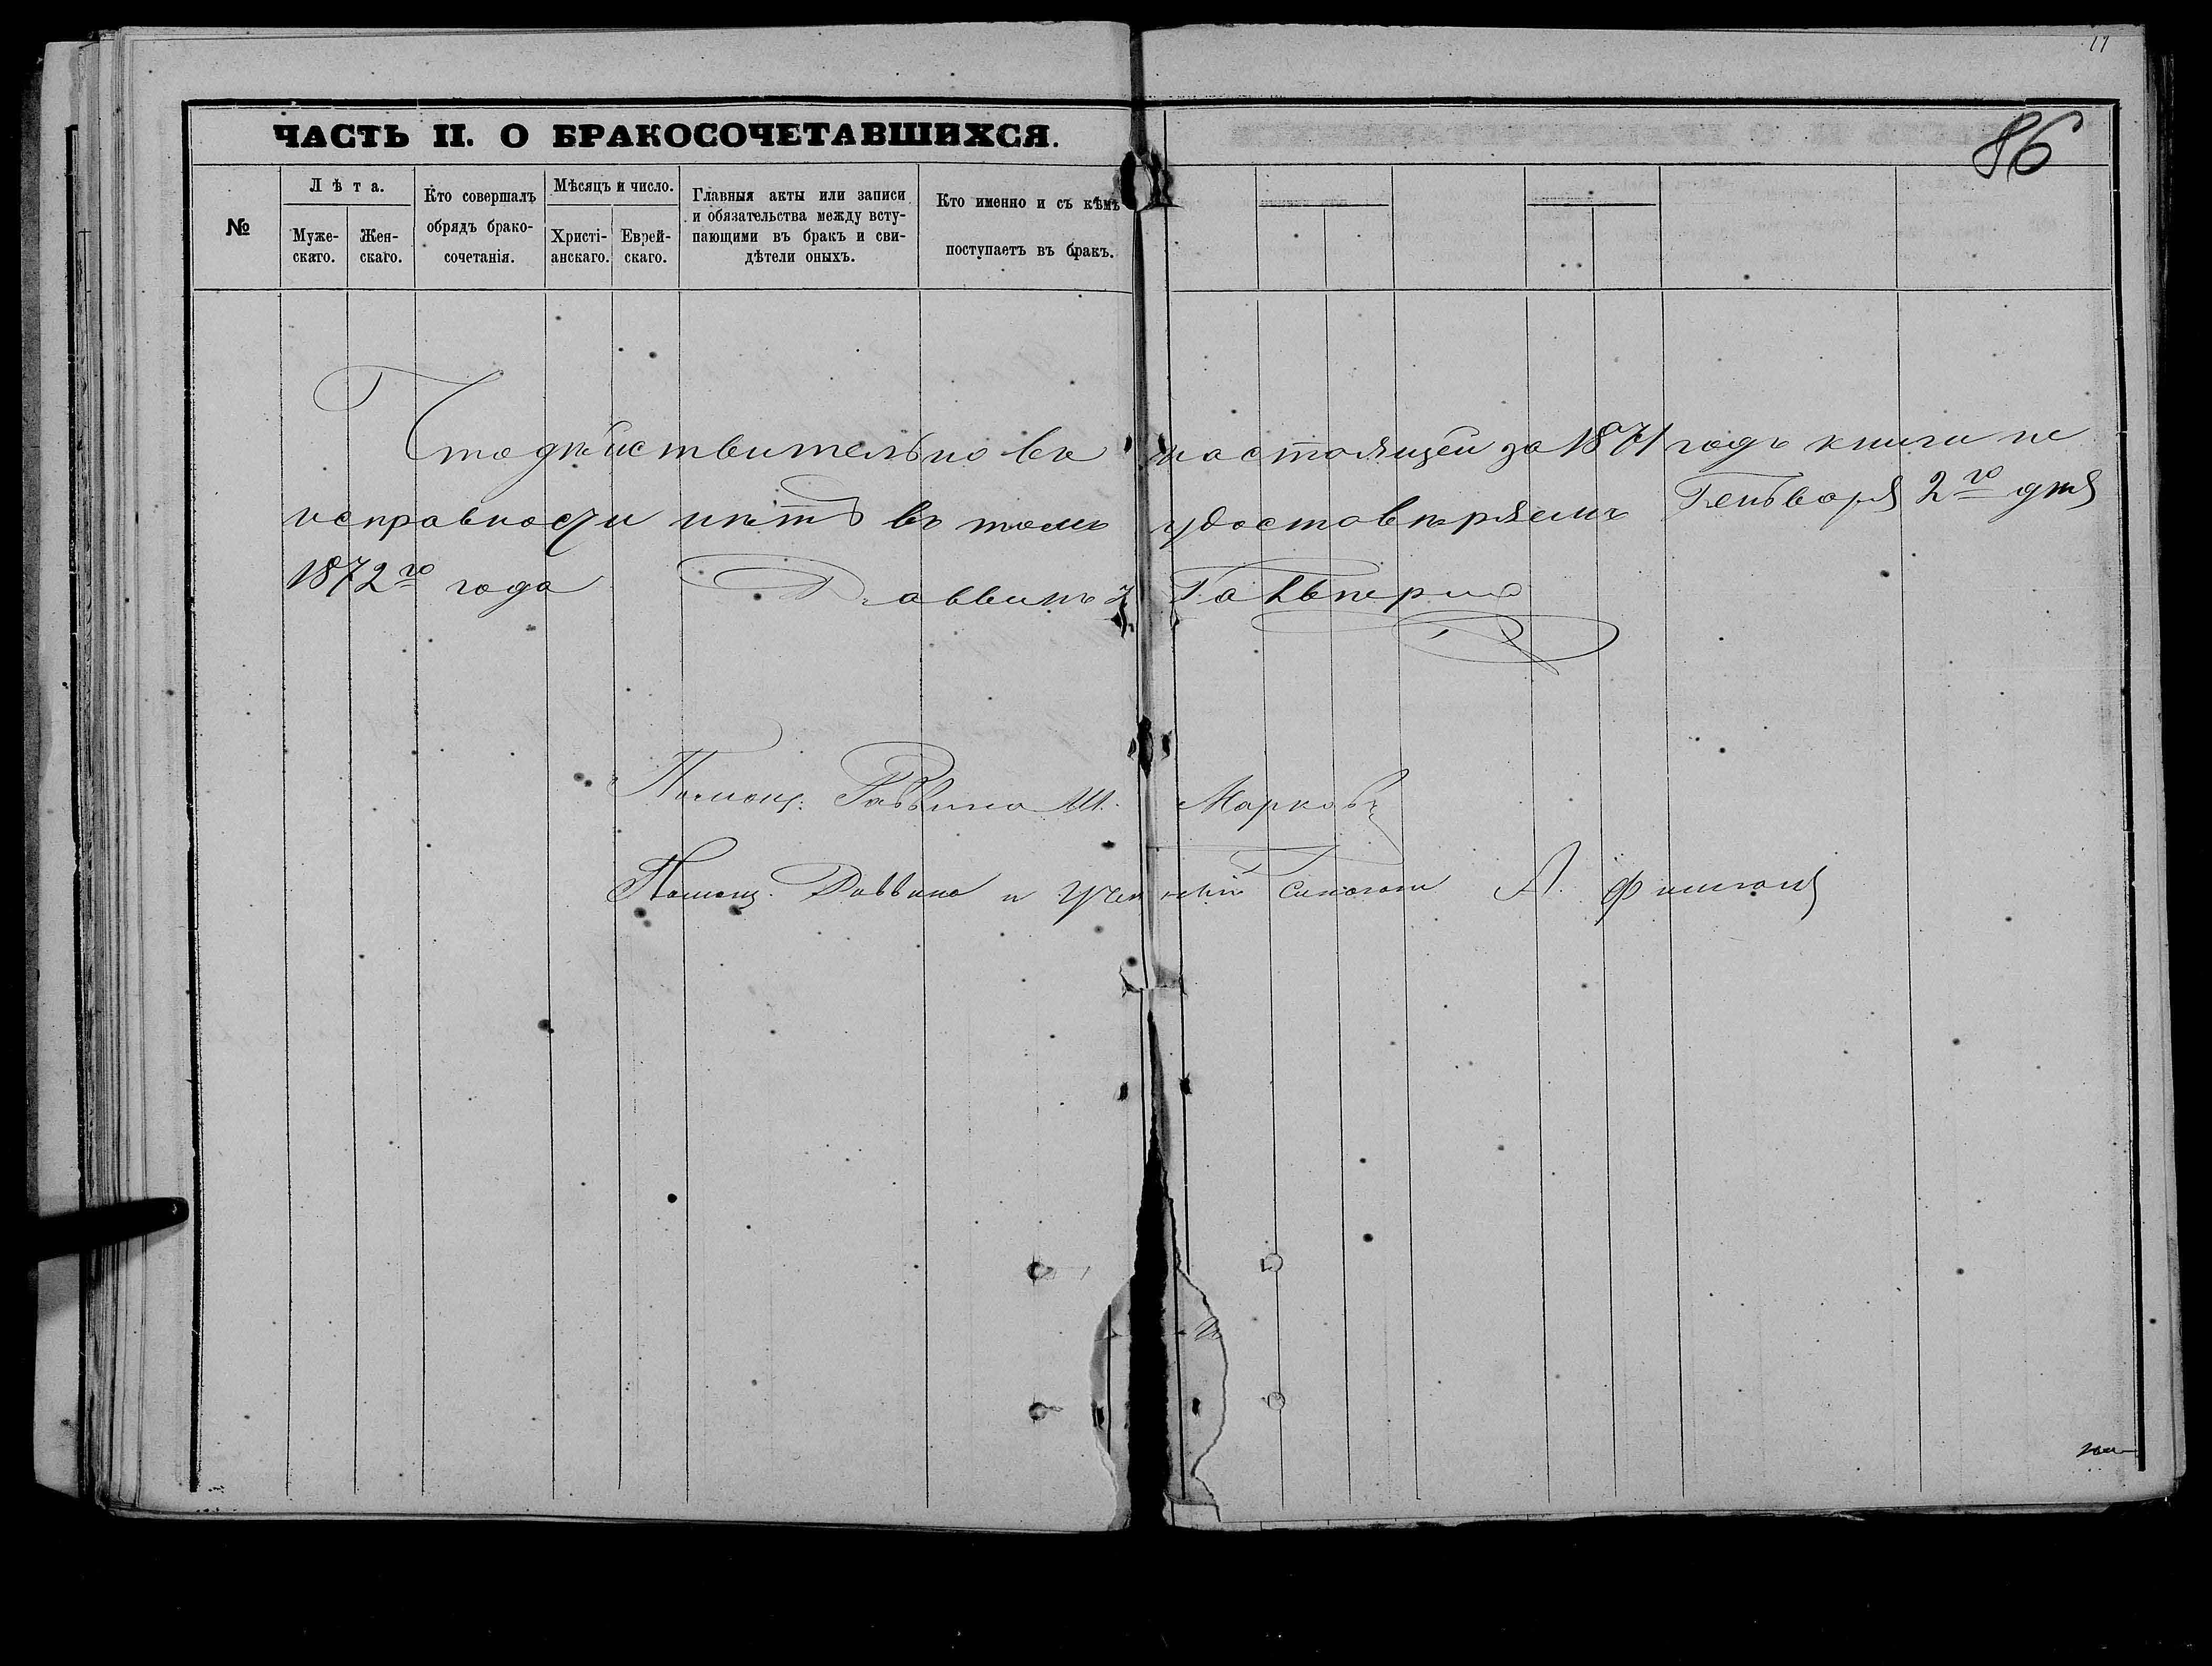 17
86
ЧАСТЬ II. О БРАКОСОЧЕТАВШИХСЯ.
№
Лѣта.
Муже-
скаго.
Жен-
скаго.
Кто совершалъ
обрядъ брако-
сочетанія.
Мѣсяцъ и число.
Христі-
анскаго.
Еврей-
скаго.
Главныя акты или записи
и обязательства между всту-
пающими въ бракъ и сви-
дѣтели оныхъ.
Кто именно и съ кѣмъ
поступаетъ въ бракъ.
Что дѣйствительно въ настоящей за 1871 годъ книги не
исправности нѣтъ въ томъ удостовѣряемъ Генваря 2го дня
1872го года Раввинъ Гальперинъ
Помощ. Раввина Ш. Марковъ
Помощ. Раввина и Ученый А.